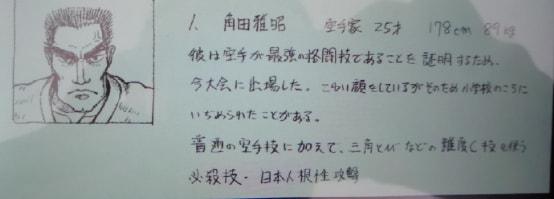 1. 角田雅昭 空手家 25才 178cm 89kg
彼は空手が最強の格闘技であることを証明するため、
今大会に出場した。こわい顔をしているがそのため小学校のころに
いぢめられたことがある。
普通の空手技に加えて、三角とびなどの難度C技を使う
必殺技・日本人根性攻撃